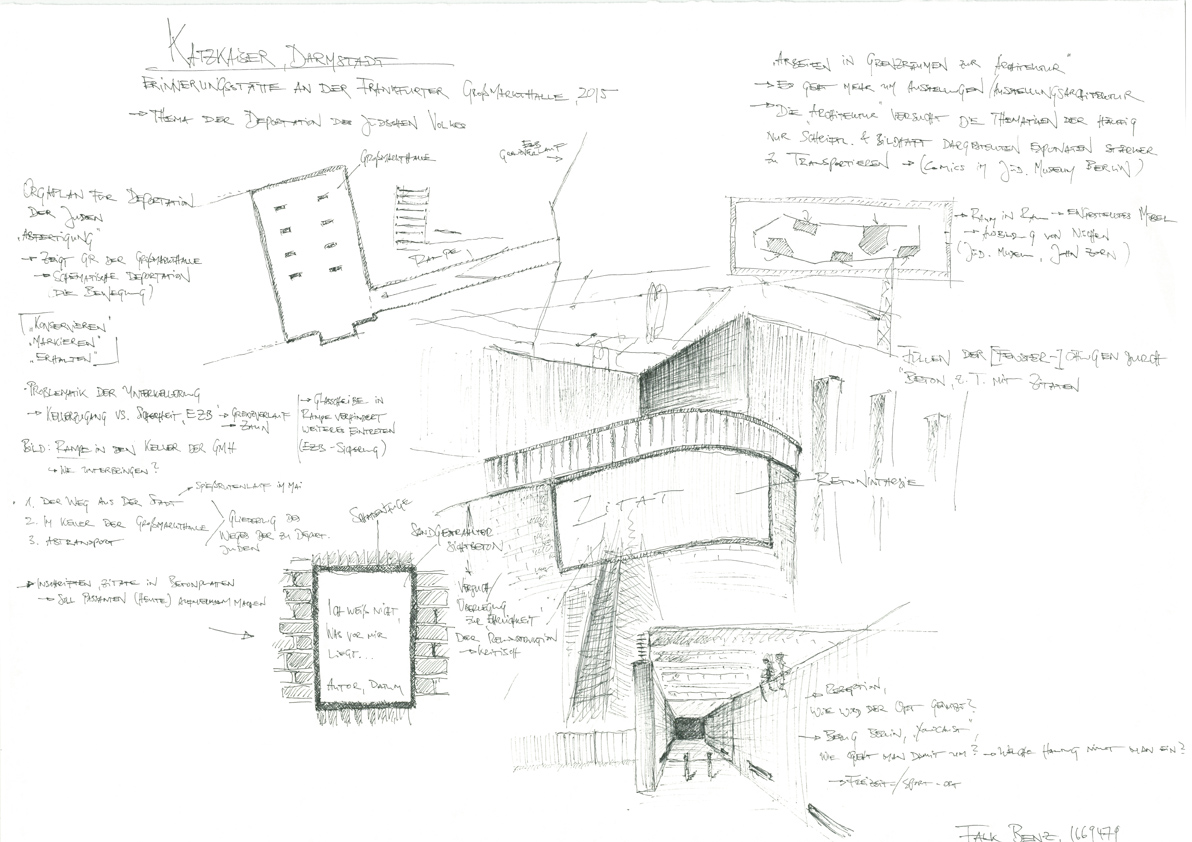 KATZKAISER, DARMSTADT
ERINNERUNGSSTÄTTE AN DER FRANKFURTER GROßMARKTHALLE, 2015
→ THEMA DER DEPORTATION DES JÜDISCHEN VOLKES
„ARBEITEN IN GRENZRÄUMEN ZUR ARCHITEKTUR"
→ ES GEHT MEHR UM AUSSTELLUNGEN / AUSSTELLUNGSARCHITEKTUR
→ DIE „ARCHITEKTUR" VERSUCHT DIE THEMATIKEN DER HÄUFIG
NUR SCHRIFTL. & BILDHAFT DARGESTELLTEN EXPONATEN STÄRKER
ZU TRANSPORTIEREN → (COMICS IM JÜD. MUSEUM BERLIN)
GROßMARKTHALLE
EZB
GRENZVERLAUF
RAMPE
ORGAPLAN FÜR DEPORTATION
DER JUDEN
„ABFERTIGUNG"
→ ZEIGT GR DER GROßMARKTHALLE
→ SCHEMATISCHE DEPORTATION
(DIE BEWEGUNG)
„KONSERVIEREN"
„MARKIEREN"
„ERHALTEN"
→ RAUM IN RAUM → EINSTELLTES MÖBEL
→ AUSBILDUNG VON NISCHEN
(JÜD. MUSEUM, JOHN ZORN)
FÜLLEN DER [FENSTER-] ÖFFNUNGEN DURCH
BETON, Z.T. MIT ZITATEN
• PROBLEMATIK DER UNTERKELLERUNG
→ KELLERZUGANG VS. SICHERHEIT, EZB → GRENZVERLAUF
→ ZAUN
→ GLASSCHEIBE IN
RAMPE VERHINDERT
WEITERES EINTRETEN
(EZB-SICHERUNG)
BILD: RAMPE IN DEN KELLER DER GMH
→ WIE UNTERBRINGEN?
→ SPIEßRUTENLAUF IM MAI
• 1. DER WEG AUS DER STADT
2. IM KELLER DER GROßMARKTHALLE
3. ABTRANSPORT
GLIEDERUNG DES
WEGES DER ZU DEPORT.
JUDEN
→ INSCHRIFTEN, ZITATE IN BETONPLATTEN
→ SOLL PASSANTEN (HEUTE) AUFMERKSAM MACHEN
SCHATTENFUGE
SANDGESTRAHLTER
SICHTBETON
ICH WEIß NICHT,
WAS VOR MIR
LIEGT...
AUTOR, DATUM
VERSUCH
ÜBERLEGUNG
ZUR EHRLICHKEIT
DER REKONSTRUKTION
→ KRITISCH
ZITAT
BETONINTARSIE
→ REZEPTION,
WIE WIRD DER ORT GENUTZT?
→ BEZUG BERLIN, „YOLOCAUST",
WIE GEHT MAN DAMIT UM? → WELCHE HALTUNG NIMMT MAN EIN?
→ FREIZEIT-/SPORT-ORT
FALK BENZ, 1669479